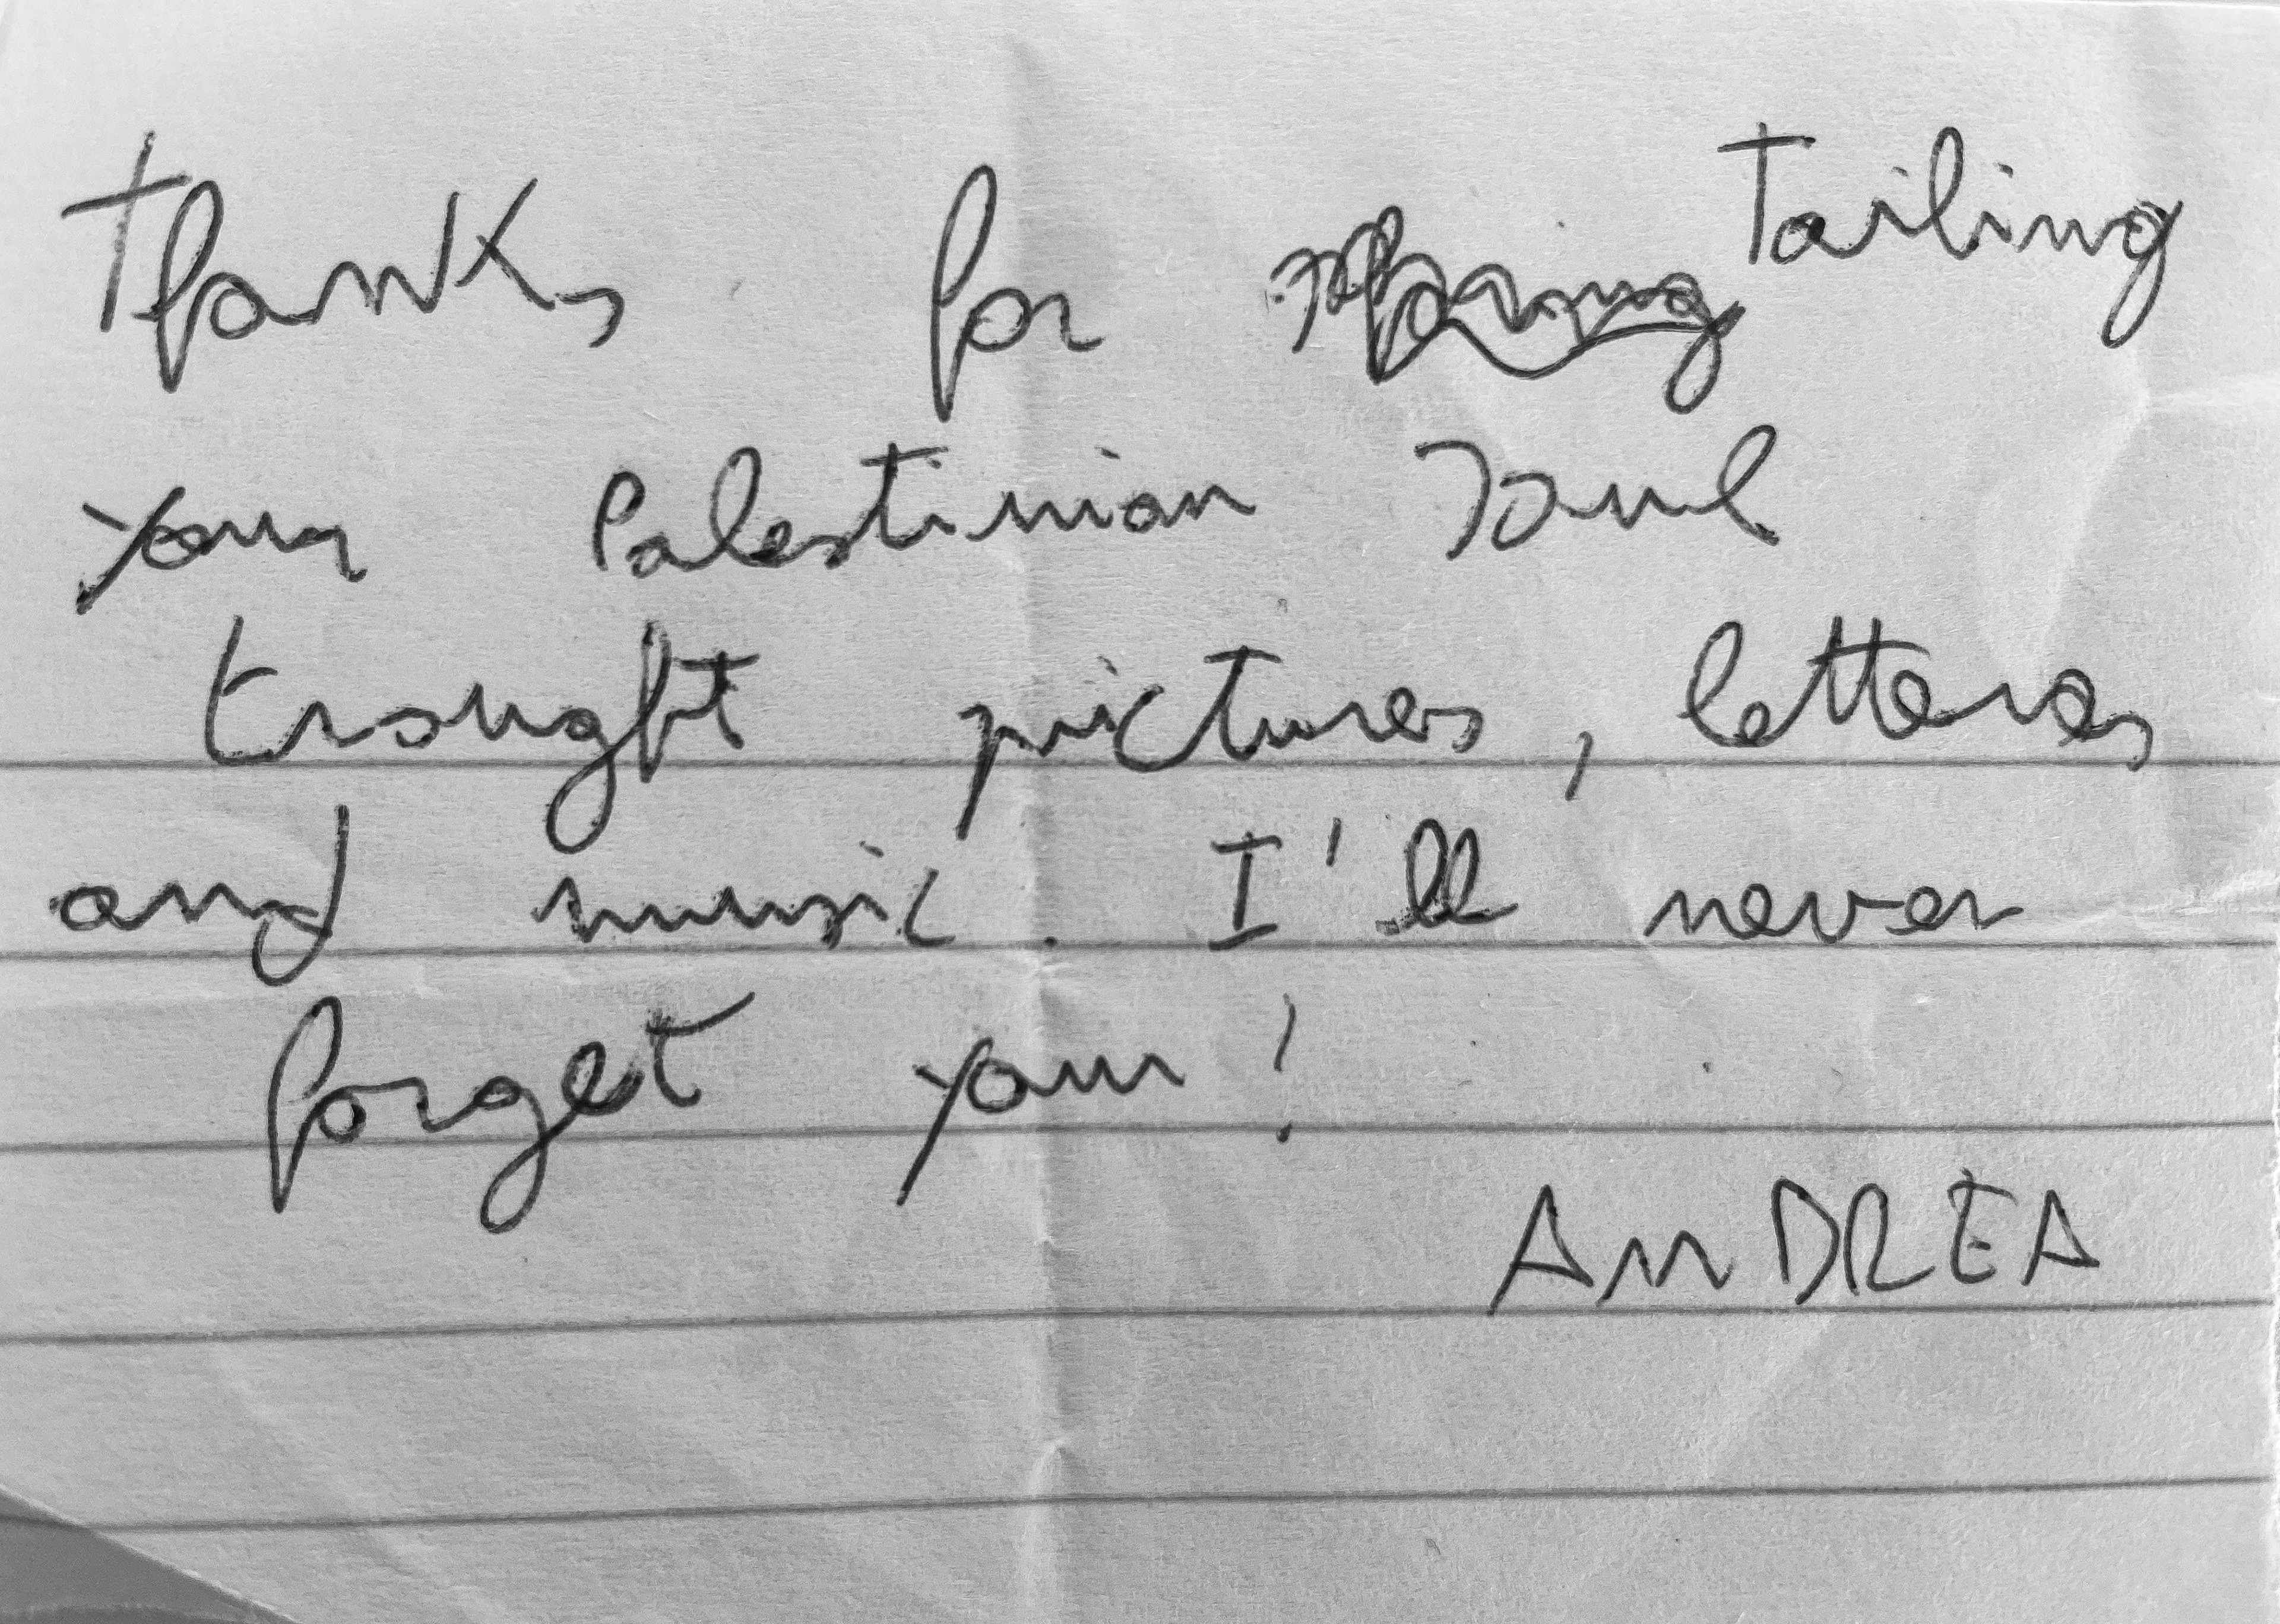 Thanks for sharing Tailing
your Palestinian soul
trought pictures, letters
and music. I'll never
forget you!
ANDREA